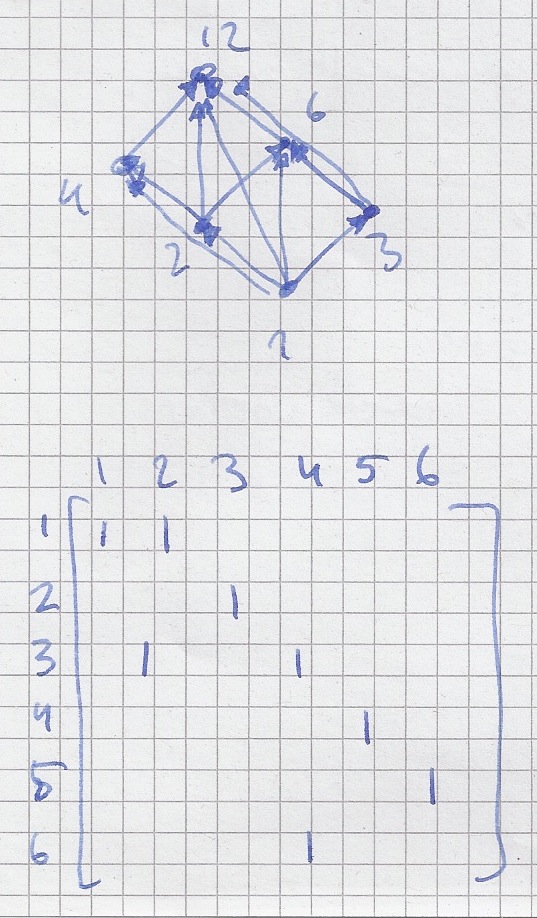 12
6
4
3
2
1
1 2 3 4 5 6
1 1 1
2 1
3 1 1
4 1
5 1
6 1